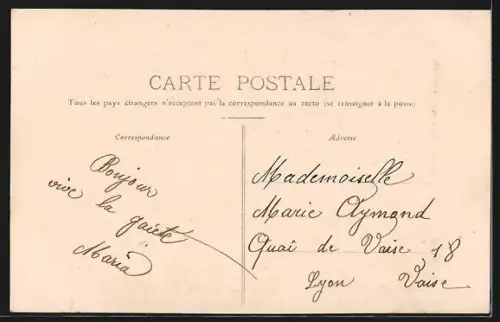 CARTE POSTALE
Tous les pays étrangers n'acceptent pas la correspondance au recto (se renseigner à la poste)
Correspondance
Bonjour
vive la gaieté
Maria
Adresse
Mademoiselle
Marie Aymond
Quai de Vaise 18
Lyon Vaise